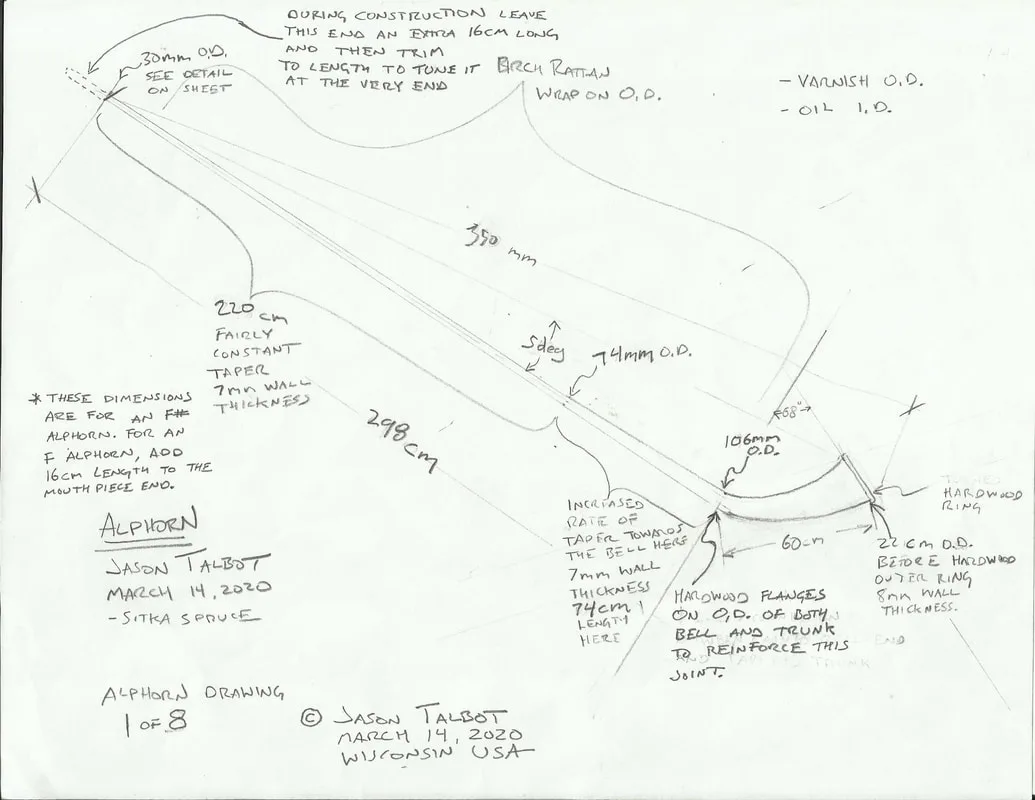 DURING CONSTRUCTION LEAVE
THIS END AN EXTRA 16CM LONG
AND THEN TRIM
TO LENGTH TO TUNE IT
AT THE VERY END
30mm O.D.
SEE DETAIL
ON SHEET
BIRCH RATTAN
WRAP ON O.D.
- VARNISH O.D.
- OIL I.D.
350 mm
220 cm
FAIRLY
CONSTANT
TAPER
7mm WALL
THICKNESS
5deg
74mm O.D.
298cm
* THESE DIMENSIONS
ARE FOR AN F#
ALPHORN. FOR AN
F ALPHORN, ADD
16cm LENGTH TO THE
MOUTH PIECE END.
68°
106mm
O.D.
HARDWOOD
RING
60cm
22 cm O.D.
BEFORE HARDWOOD
OUTER RING
8mm WALL
THICKNESS.
INCREASED
RATE OF
TAPER TOWARDS
THE BELL HERE
7mm WALL
THICKNESS
74cm
LENGTH
HERE
HARDWOOD FLANGES
ON O.D. OF BOTH
BELL AND TRUNK
TO REINFORCE THIS
JOINT.
ALPHORN
JASON TALBOT
MARCH 14, 2020
- SITKA SPRUCE
ALPHORN DRAWING
1 OF 8
© JASON TALBOT
MARCH 14, 2020
WISCONSIN USA